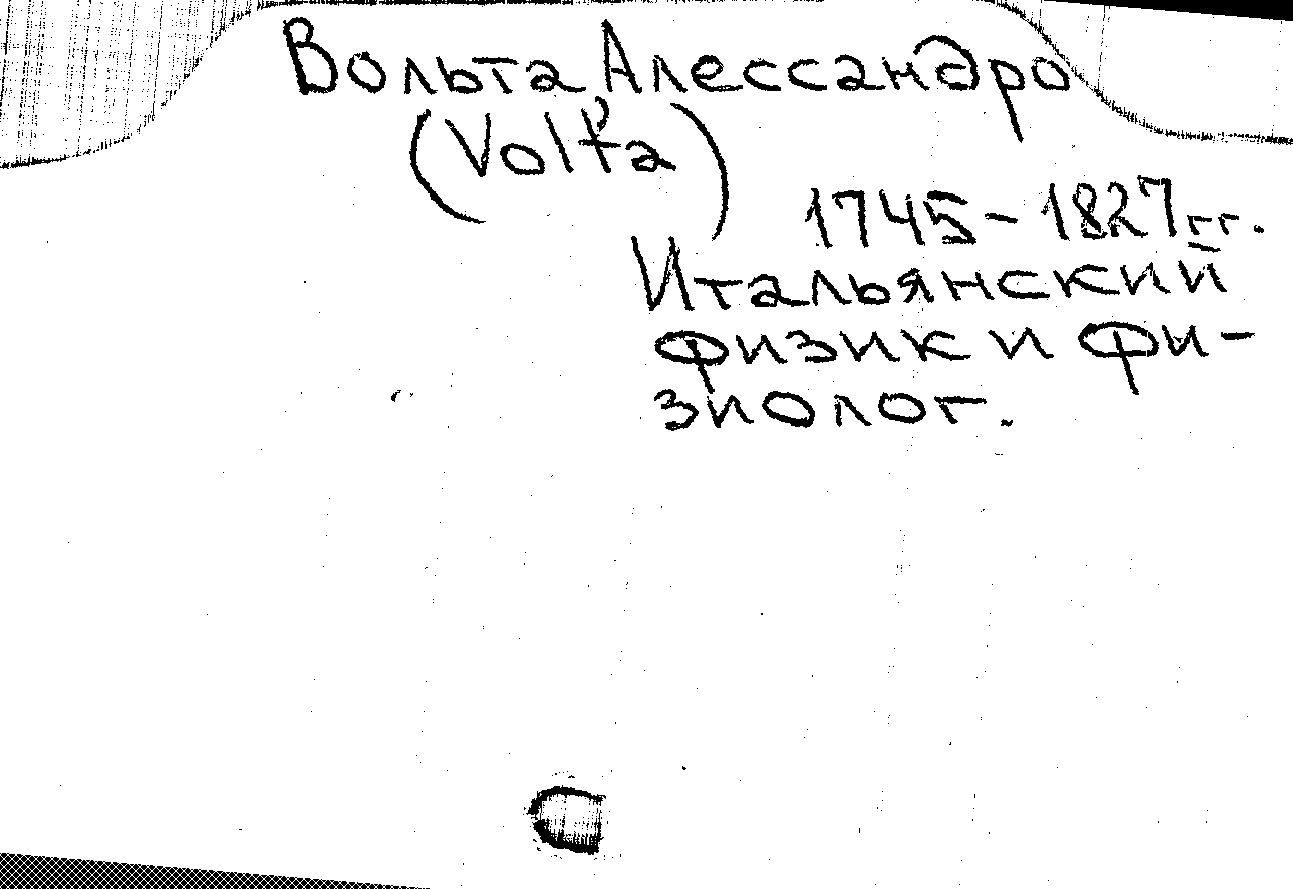 Вольта, Алессандро
(Volta)
1745-1827 гг.
Итальянский
физик и фи-
зиолог.